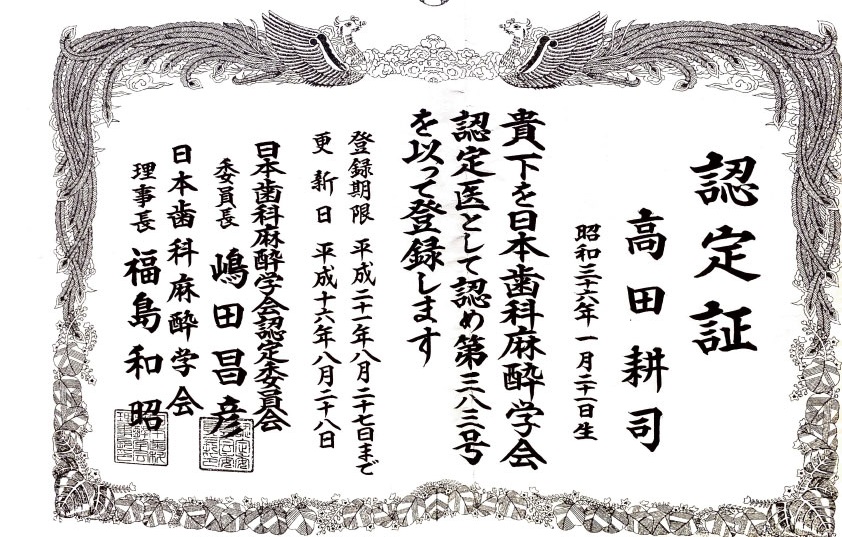 認定証
高田耕司
昭和三十六年一月二十二日生
貴下を日本歯科麻酔学会
認定医として認め第三八三号
を以って登録します
登録期限 平成二十一年八月二十七日まで
更新日 平成十六年八月二十八日
日本歯科麻酔学会認定委員会
委員長 嶋田昌彦
日本歯科麻酔学会
理事長 福島和昭